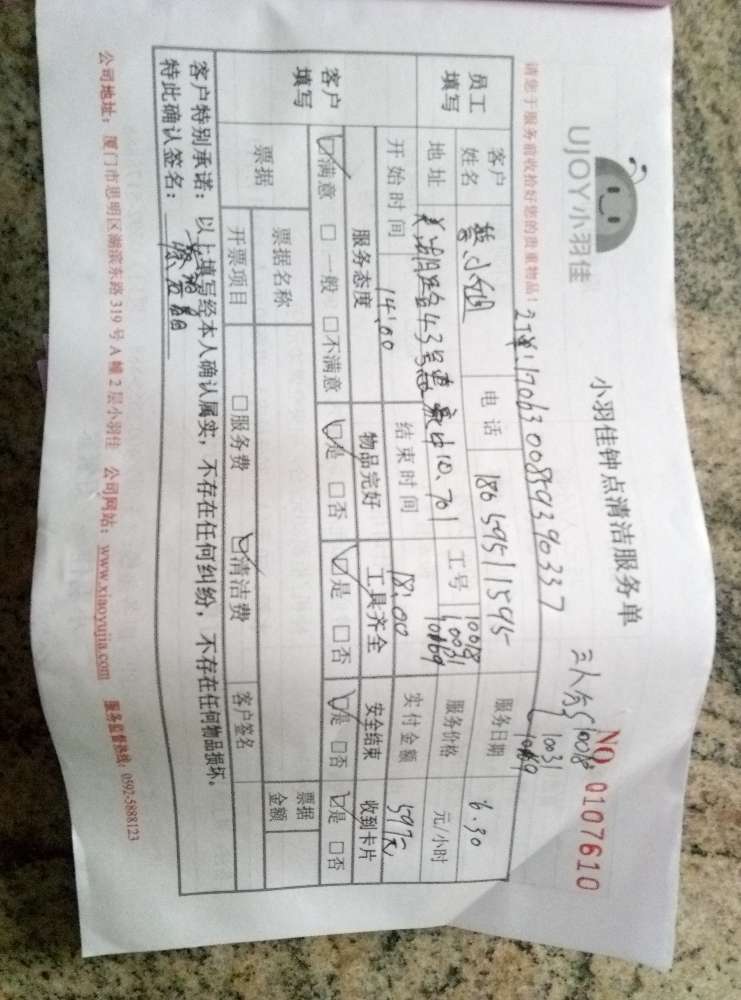 UJOY小羽佳
小羽佳钟点清洁服务单
NO 0107610
请您于服务前收拾好您的贵重物品!
订单:17063008593390337
三人分 10018
10031
10169
员工填写
客户姓名 小姐 电话 18659511595 服务日期 6.30
地址 43号 701 工号 10018 10031 10169 服务价格 元/小时
开始时间 14:00 结束时间 18:00 实付金额 597元
客户填写
服务态度 物品完好 工具齐全 安全结束 收到卡片
☑满意 □一般 □不满意 ☑是 □否 ☑是 □否 ☑是 □否 ☑是 □否
票据
票据名称 票据金额
开票项目 □服务费 ☑清洁费 客户签名
客户特别承诺:以上填写经本人确认属实,不存在任何纠纷,不存在任何物品损坏。
特此确认签名:
公司地址:厦门市思明区湖滨东路319号A幢2层小羽佳 公司网站:www.xiaoyujia.com 服务监督热线:0592-5888123